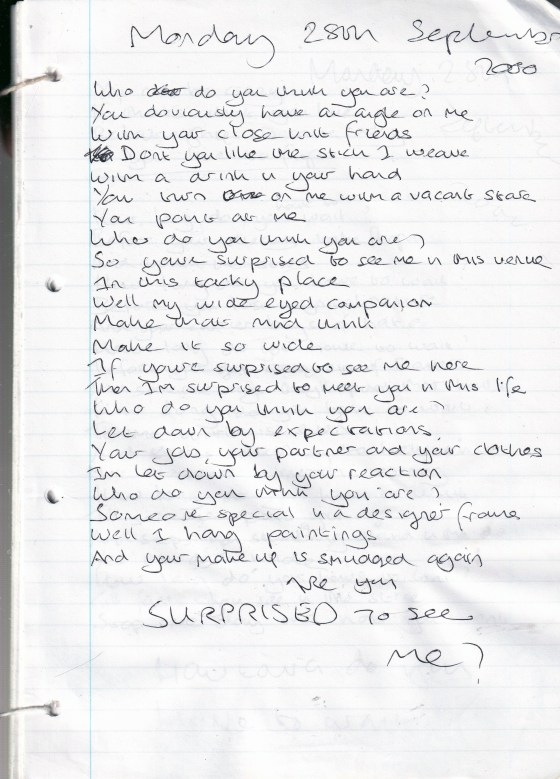 Monday 28th September
2000
Who do you think you are?
You obviously have an angle on me
With your close knit friends
Dont you like the stich I weave
With a drink in your hand
You turn on me with a vacant stare
You point at me
Who do you think you are?
So your surprised to see me in this venue
In this tacky place
Well my wide eyed companion
Make that mind think
Make it so wide
If you're surprised to see me here
Then Im surprised to meet you in this life
Who do you think you are?
Let down by expectations,
Your job, your partner and your clothes
Im let down by your reaction
Who do you think you are?
Someone special in a designer frame
Well I hang paintings
And your make up is smudged again
Are you
SURPRISED To see
Me?